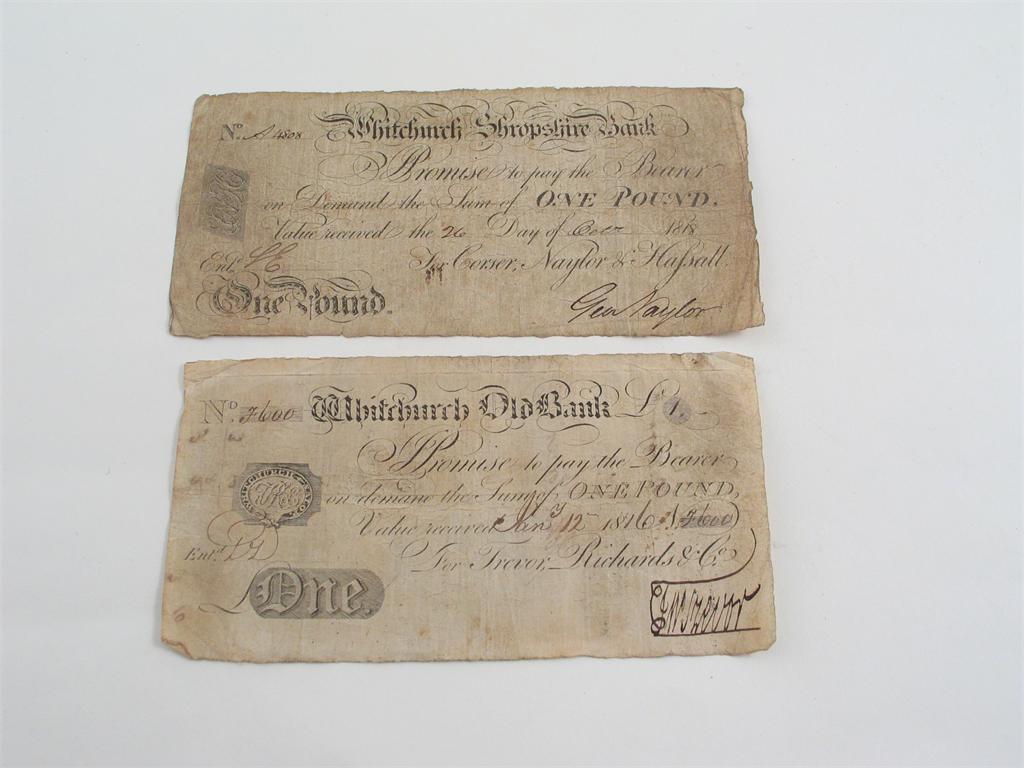 No. A 4808 Whitchurch Shropshire Bank
I Promise to pay the Bearer
on Demand the Sum of ONE POUND.
Value received the 26 Day of Octr 1818
Entd.
For Corser, Naylor & Haſsall.
One Pound.
Geo Naylor
No. 7600 Whitchurch Old Bank £1.
I Promise to pay the Bearer
WHITCHURCH
on demand the Sum of ONE POUND,
Value received Jany 12 1816 N 7600
Entd.
For Trevor, Richards & Co.
£One.
Trevor